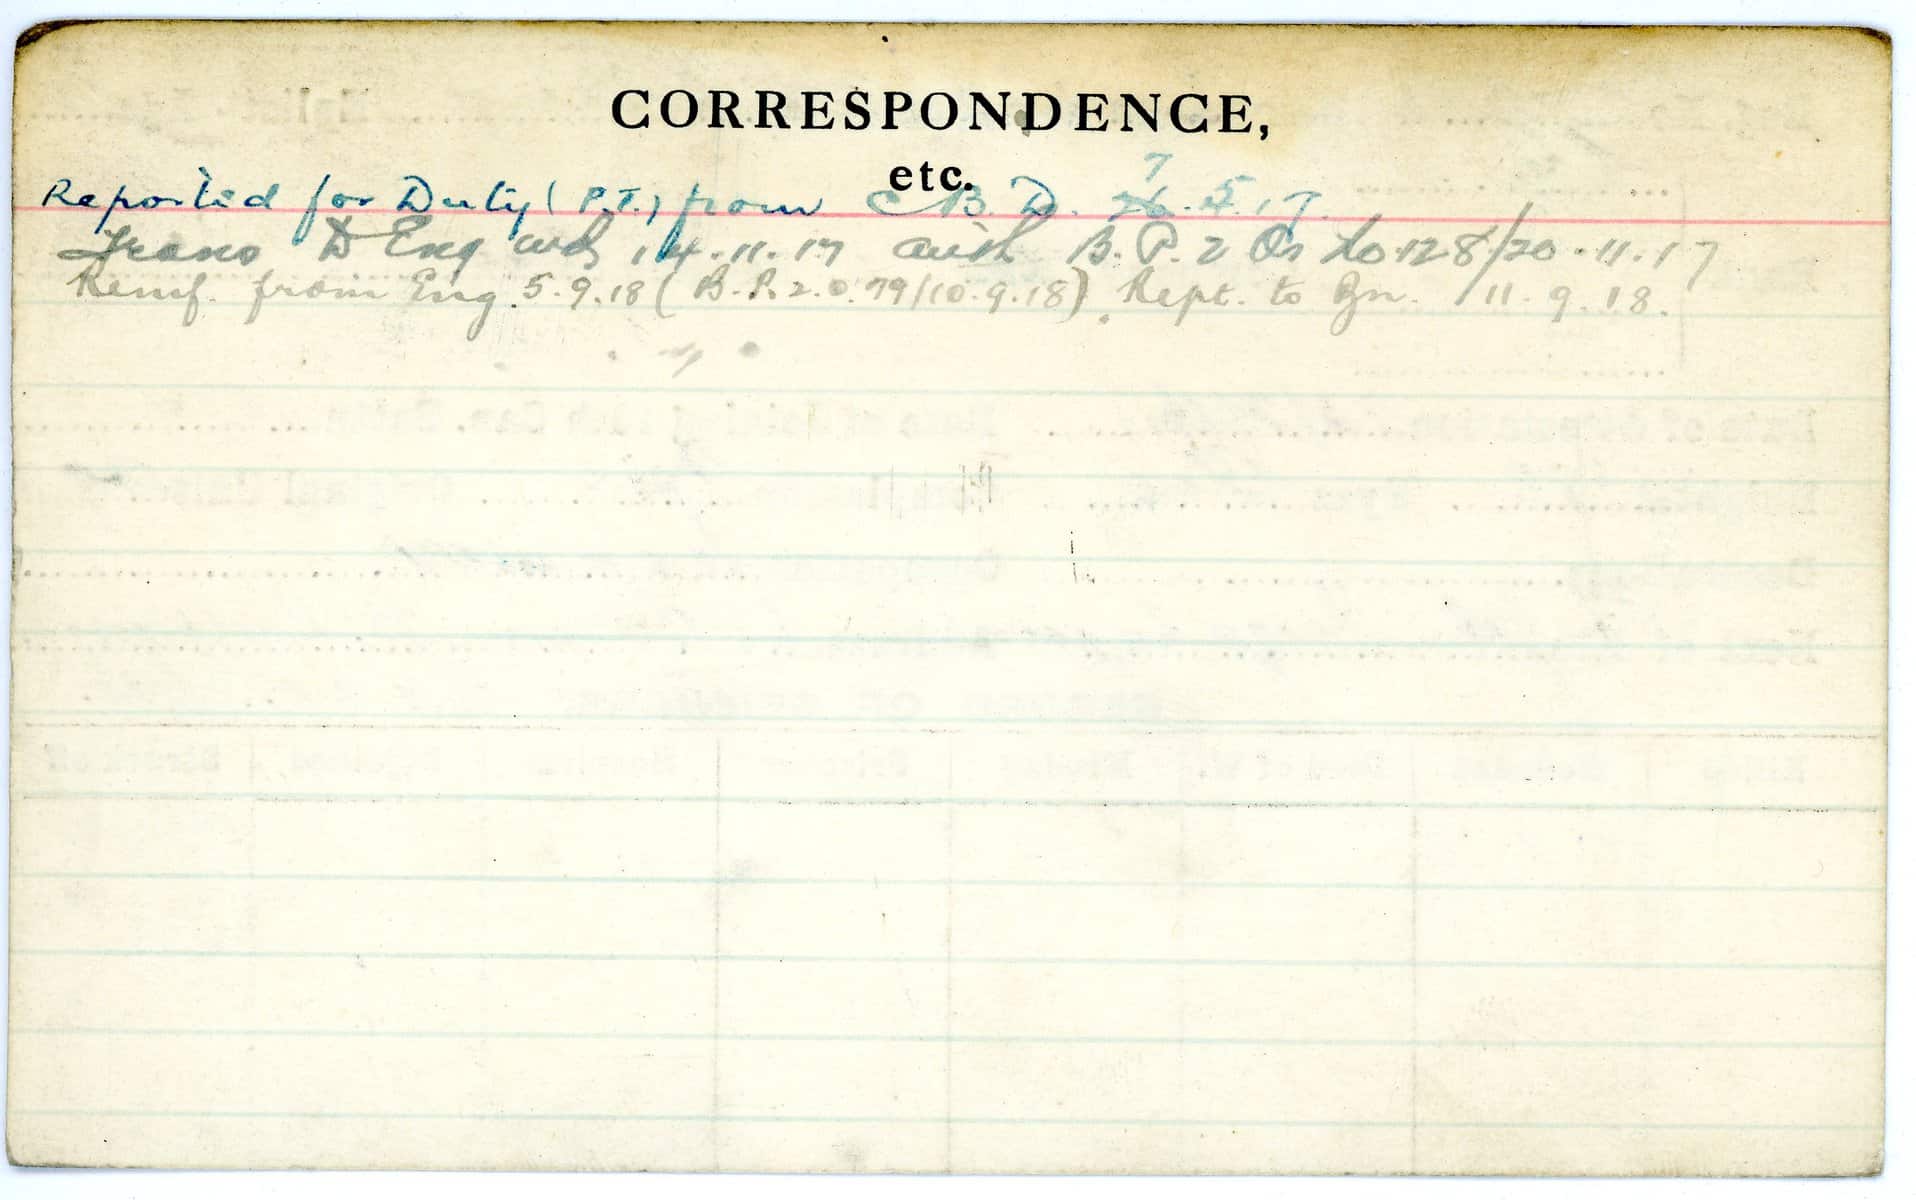 CORRESPONDENCE,
etc.
Reported for Duty (P.T.) from C B. D. 7.5.17.
Trans D Eng wd 14.11.17 auth B.P. 2 Os No 128/20.11.17
Reinf. from Eng. 5.9.18 (B.P. 2.0.79/10.9.18). Rept. to Bn. 11.9.18.